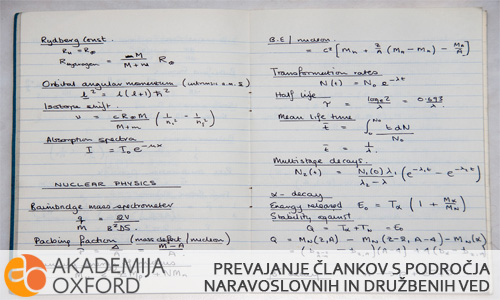 Rydberg Const.
R∞ = R⊕
R hydrogen = M / M + m R⊕
Orbital angular momentum (intrinsic e.m.s)
l² = l(l+1) ħ²
Isotope shift.
u = c R⊕ M / M+m ( 1/n₁² - 1/n₂² )
Absorption spectra
I = I₀ e^-μx
NUCLEAR PHYSICS
Bainbridge mass spectrometer
q/m = 2V / B²DS.
Packing fraction (mass defect/nucleon)
B.E / nucleon
= c² [ Mn + Z/A (Mn - Mn) - Mn/A ]
Transformation rates
N(t) = N₀ e^-λt
Half life
τ = loge2 / λ = 0.693 / λ
Mean life time
t̄ = ∫₀^N₀ t dN / N₀
t̄ = 1/λ
Multistage decays.
N₂(t) = N₁(0) λ₁ / λ₂ - λ₁ ( e^-λ₁t - e^-λ₂t )
α - decay
Energy released E₀ = Tα ( 1 + Mα/MN )
Stability against
Q = Tα + TN = E₀
Q = MN(Z,A) - MN(Z-2, A-4) - MN(α)
AKADEMIJA
OXFORD
PREVAJANJE ČLANKOV S PODROČJA
NARAVOSLOVNIH IN DRUŽBENIH VED